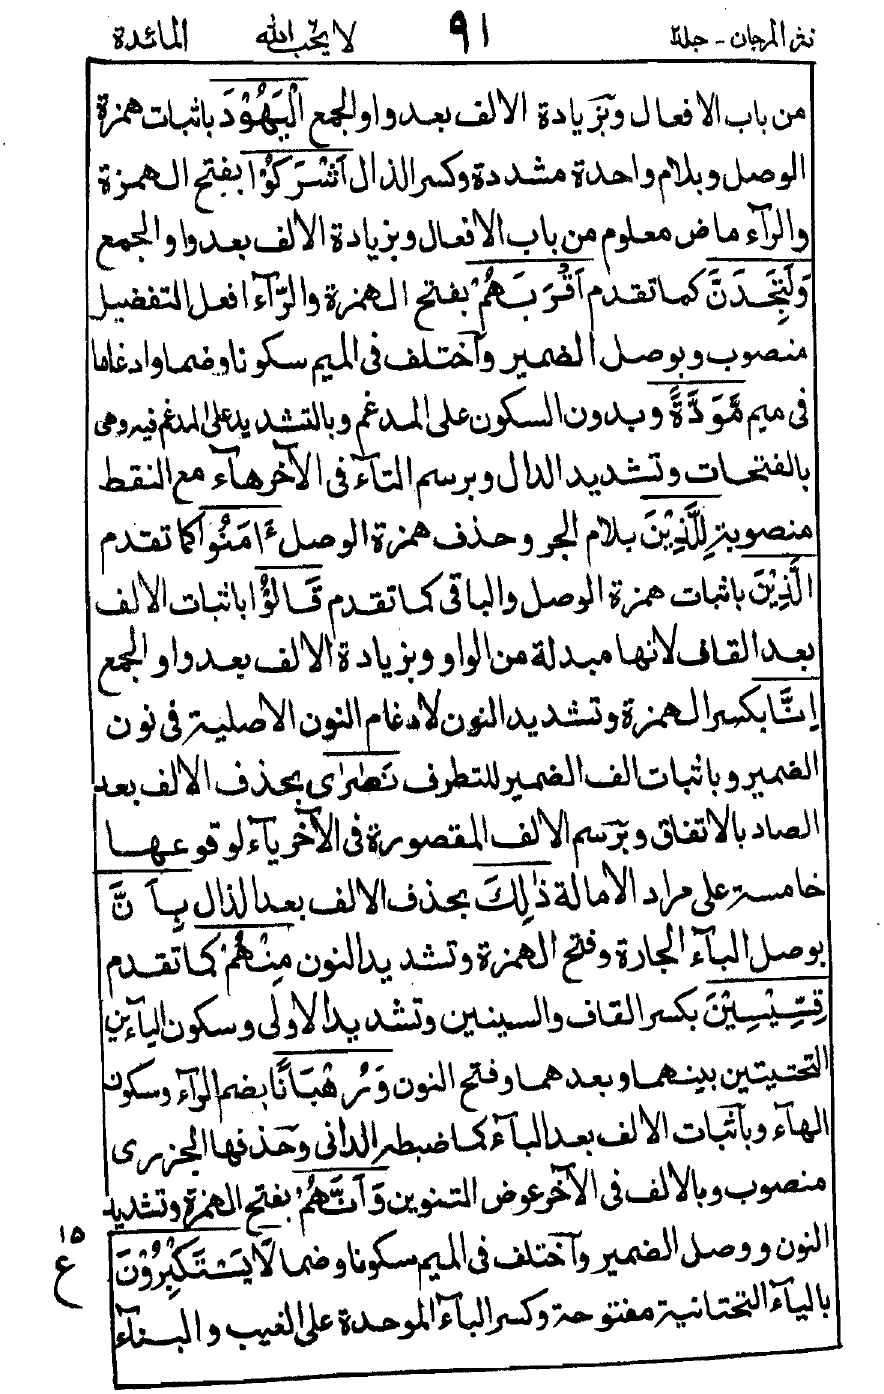 نثر المرجان - جلد ٢ ٩١ لا يحب الله المائدة
من باب الافعال وبزيادة الالف بعد واو الجمع الْيَهُوْدَ باثبات همزة
الوصل وبلام واحدة مشددة وكسر الذال اَشْرَكُوْا بفتح الهمزة
والرآء ماض معلوم من باب الافعال وبزيادة الالف بعد واو الجمع
وَلَتَجِدَنَّ كما تقدم اَقْرَبَهُمْ بفتح الهمزة والرّآء افعل التفضيل
منصوب وبوصل الضمير وآختلف فى الميم سكونا وضما وادغاما
فى ميم مَّوَدَّةً وبدون السكون على المدغم وبالتشديد على المدغم فيه وهى
بالفتحات وتشديد الدال وبرسم التآء فى الآخر هآء مع النقط
منصوبة لِلَّذِيْنَ بلام الجر وحذف همزة الوصل ءَامَنُوْا كما تقدم
الَّذِيْنَ باثبات همزة الوصل والباقى كما تقدم قَالُوْا باثبات الالف
بعد القاف لانها مبدلة من الواو وبزيادة الالف بعد واو الجمع
اِنَّا بكسر الهمزة وتشديد النون لادغام النون الاصلية فى نون
الضمير وباثبات الف الضمير للتطرف نَصٰرٰى بحذف الالف بعد
الصاد بالاتفاق وبرسم الالف المقصورة فى الآخر يآء لوقوعها
خامسة على مراد الامالة ذٰلِكَ بحذف الالف بعد الذال بِاَنَّ
بوصل البآء الجارة وفتح الهمزة وتشديد النون مِنْهُمْ كما تقدم
قِسِّيْسِيْنَ بكسر القاف والسينين وتشديد الاولى وسكون اليآءين
التحتيتين بينهما وبعدهما وفتح النون وَرُهْبَانًا بضم الرآء وسكون
الهآء وبآثبات الالف بعد البآء كما ضبطه الدانى وحذفها الجزرى
منصوب وبالالف فى الآخر عوض التنوين وَاَنَّهُمْ بفتح الهمزة وتشديد
النون ووصل الضمير وآختلف فى الميم سكونا وضما لَا يَسْتَكْبِرُوْنَ
١٥
ع
باليآء التحتانية مفتوحة وكسر البآء الموحدة على الغيب والبنآء